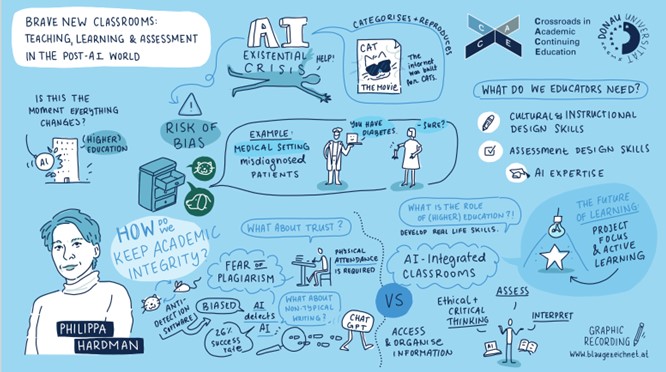 BRAVE NEW CLASSROOMS:
TEACHING, LEARNING & ASSESSMENT
IN THE POST-A.I. WORLD
AI
EXISTENTIAL
CRISIS
HELP!
CATEGORISES + REPRODUCES
CAT
THE MOVIE
The
internet
was built
for CATS.
CA
CE
Crossroads in
Academic
Continuing
Education
DONAU UNIVERSITÄT
IS THIS THE
MOMENT EVERYTHING
CHANGES?
AI
(HIGHER)
EDUCATION
RISK OF
BIAS
EXAMPLE:
MEDICAL SETTING
misdiagnosed
PATIENTS
YOU HAVE
DIABETES.
- SURE?
WHAT DO WE EDUCATORS NEED?
CULTURAL & INSTRUCTIONAL
DESIGN SKILLS
ASSESSMENT DESIGN SKILLS
AI EXPERTISE
PHILIPPA
HARDMAN
HOW DO WE
KEEP ACADEMIC
INTEGRITY?
ANTI-
DETECTION
SOFTWARE
WHAT ABOUT TRUST?
FEAR OF
PLAGIARISM
PHYSICAL
ATTENDANCE
IS REQUIRED
BIASED
AI
detects
AI
26%
success
rate
WHAT ABOUT
NON-TYPICAL
WRITING?
CHAT
GPT
VS
WHAT IS THE ROLE
OF (HIGHER) EDUCATION?!
DEVELOP REAL LIFE SKILLS.
AI-INTEGRATED
CLASSROOMS
Ethical +
CRITICAL
THINKING
ASSESS
INTERPRET
ACCESS
& ORGANISE
INFORMATION
AI
THE FUTURE
OF LEARNING:
PROJECT
FOCUS
& ACTIVE
LEARNING
GRAPHIC
RECORDING
www.blaugezeichnet.at